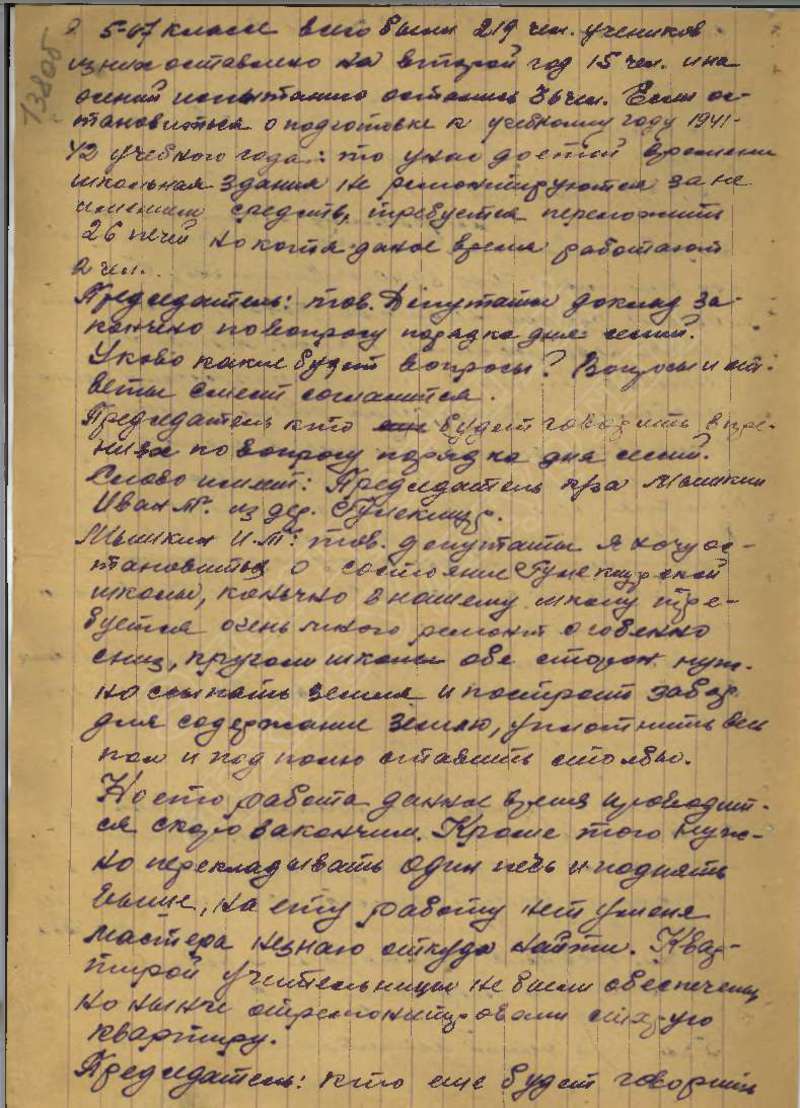 13805
5-07 класс всего были 219 чел. учеников
из них оставлено на второй год 15 чел. и на
осений испытанию остались 36 чел. Если ос-
тановиться о подготовке к учебному году 1941-
42 учебного года: то у нас до етой времени
школьная здания не ремонтируются за не
имением средств, требуется переложить
26 печей но хотя даное время работают
2 чел.
Председатель: тов. Депутаты доклад за-
кончено по вопросу порядка дня сесий.
У ково какие будет вопросы? Вопросы и от-
веты смети согланится.
Председатель кто будет говорить в пре-
ниях по вопросу порядка дня сесий.
Слово имеит: Председатель Мышкин
Иван М. из дер. Гунекшур.
Мышкин И.М: тов. депутаты я хочу ос-
тановиться о состояние Гунекшурской
школы, конечно в нашему школу тре-
буется очень много ремонт особенно
сниз, кругом школы обе сторон нуж-
но ссыпать земля и построит забор
для содержание землю, уплотнить весь
пол и под полю ставить столбы.
Но ето работа данное время проводит-
ся скоро вакончим. Кроме того нуж-
но перекладывать один печь и поднять
выше, на ету работу нет у меня
мастера незнаю откуда найти. Квар-
тирой учительницы не были обеспечены
но нынче отремонтировали
квартиру.
Председатель: кто еще будет говорить